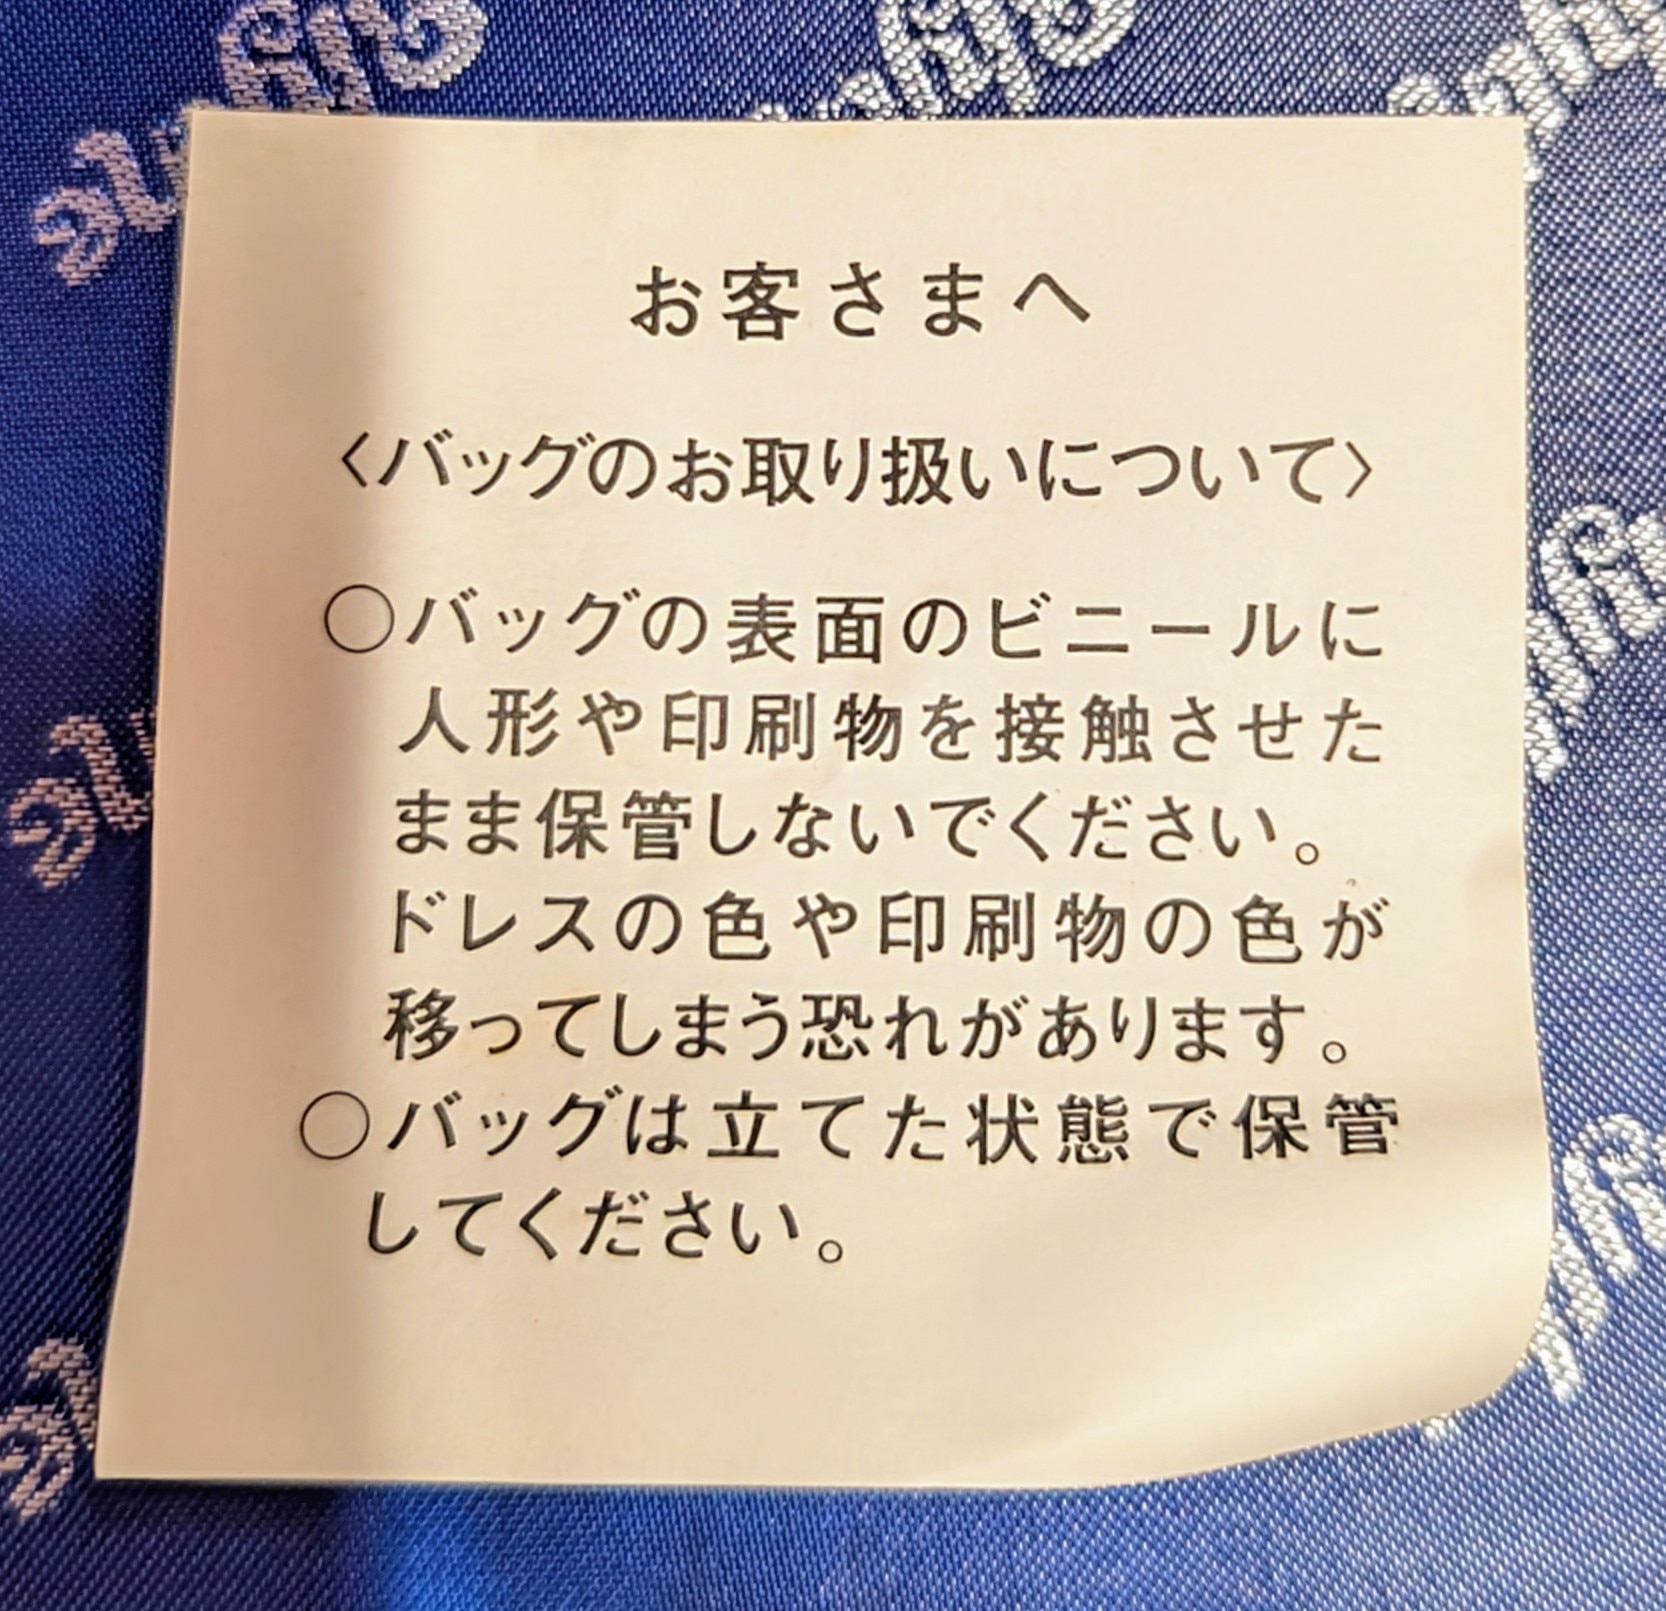 お客さまへ
〈バッグのお取り扱いについて〉
○バッグの表面のビニールに
人形や印刷物を接触させた
まま保管しないでください。
ドレスの色や印刷物の色が
移ってしまう恐れがあります。
○バッグは立てた状態で保管
してください。